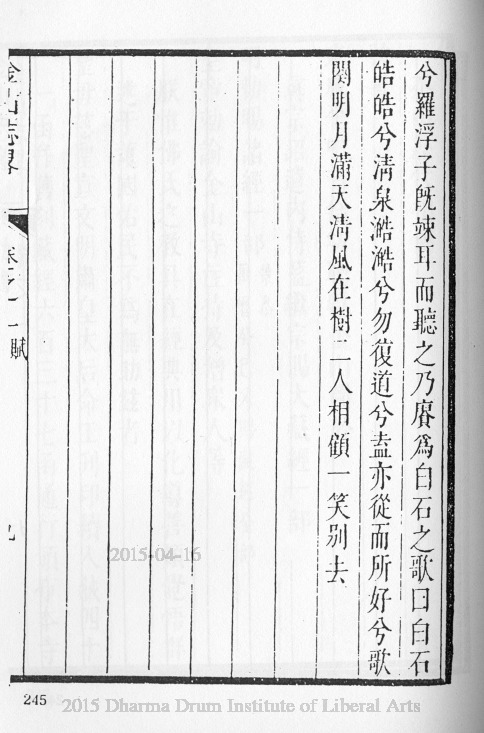 兮羅浮子旣竦耳而聽之乃賡爲白石之歌曰白石
皓皓兮淸泉澔澔兮勿復道兮盍亦從而所好兮歌
闋明月滿天淸風在樹二人相顧一笑別去
金山志畧
卷之一賦
九
2015-04-16
245
2015 Dharma Drum Institute of Liberal Arts